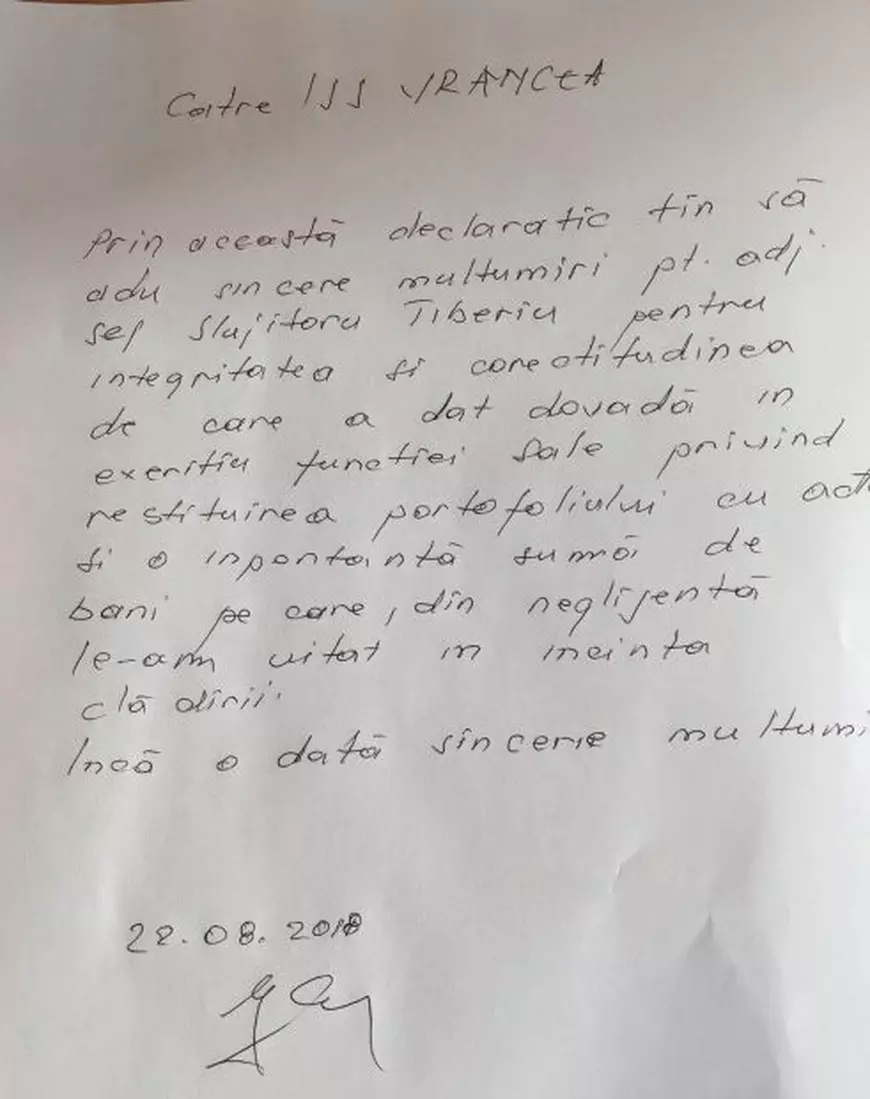 Catre ISJ VRANCEA
Prin această declaratie tin să
adu sincere multumiri pt. adj.
sef Slujitoru Tiberiu pentru
integritatea si corectitudinea
de care a dat dovadă in
exeritiu functiei sale privind
restituirea portofoliului cu act
si o inportantă sumă de
bani pe care, din neglijentă
le-am uitat in incinta
clădirii.
Incă o dată sincerie multumi
22.08.2018